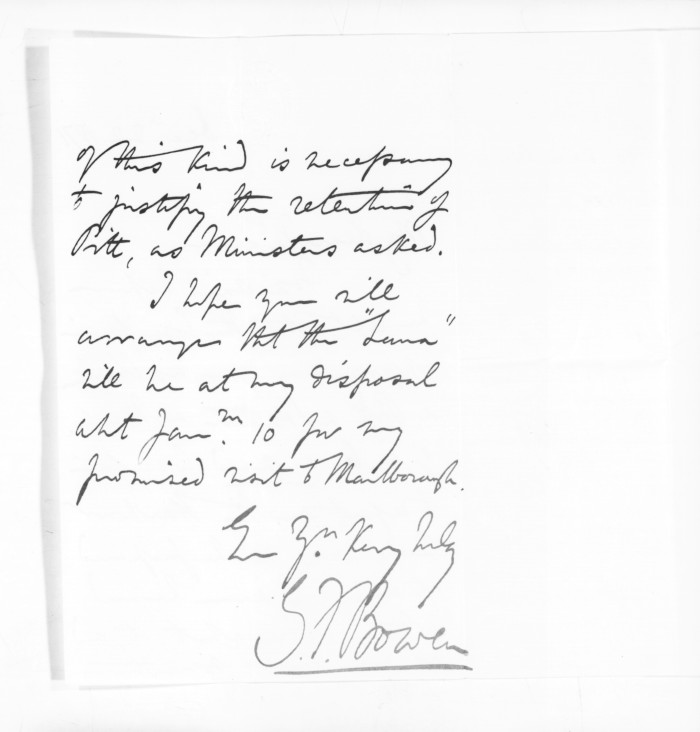 of this kind is necessary
to justify the retention of
Pitt, as Ministers asked.
I hope you will
arrange that the "Luna"
will be at my disposal
abt Jan. 10 for my
promised visit to Marlborough.
Yrs. Very truly
G. F. Bowen